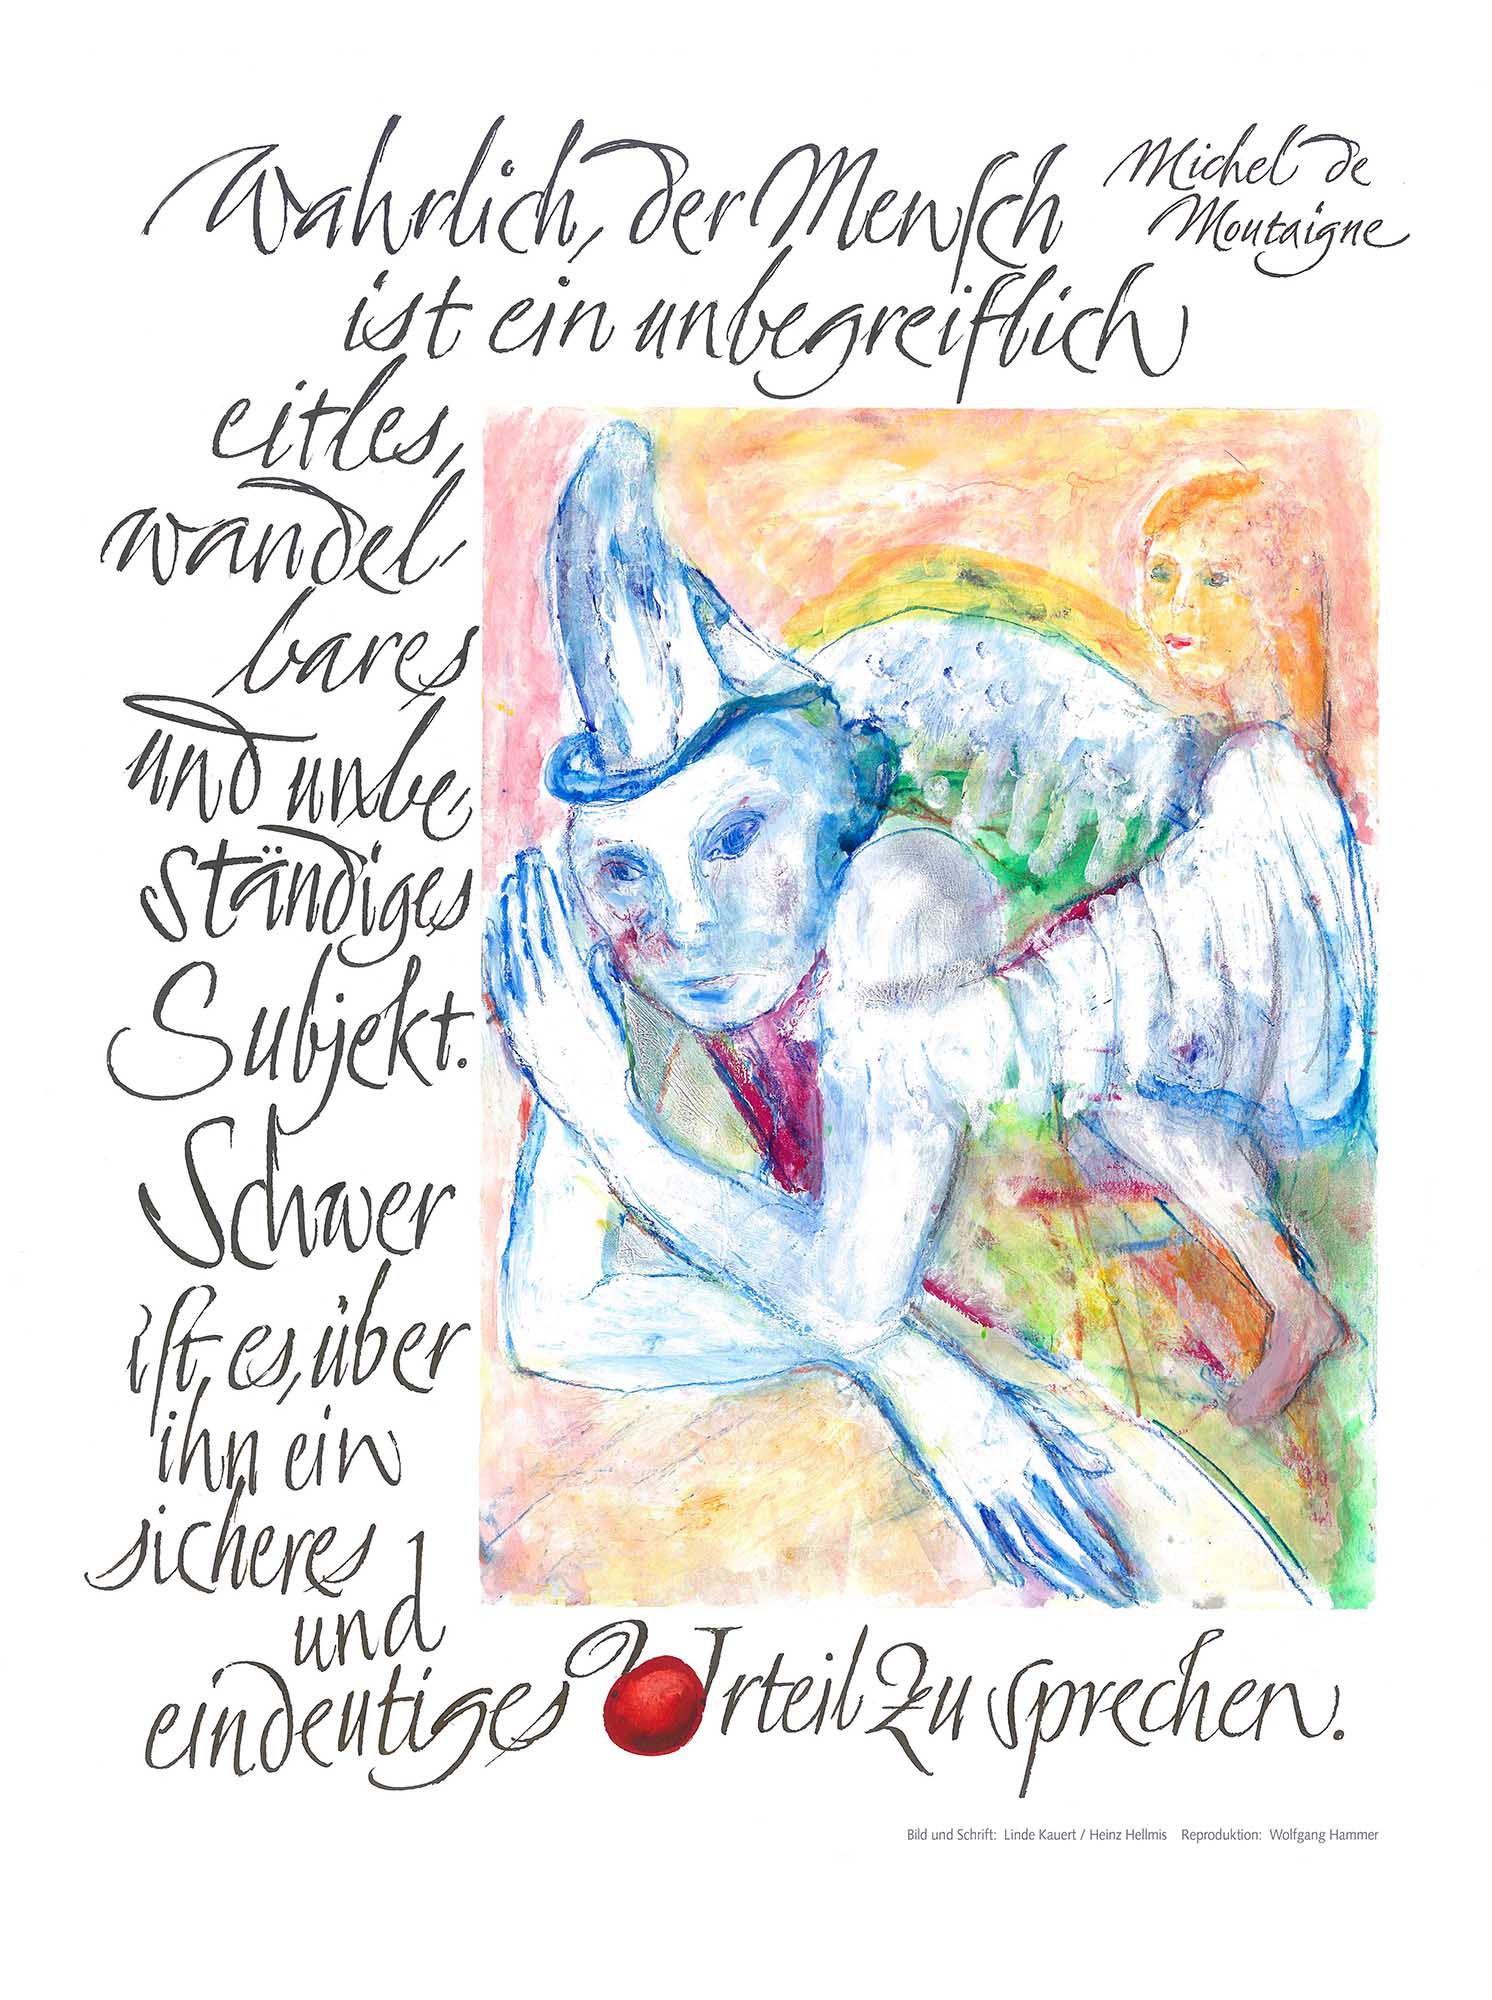 Wahrlich, der Mensch
Michel de
Montaigne
ist ein unbegreiflich
eitles,
wandel-
bares
und unbe-
ständiges
Subjekt.
Schwer
ist es, über
ihn ein
sicheres
und
eindeutiges Urteil zu sprechen.
Bild und Schrift: Linde Kauert / Heinz Hellmis Reproduktion: Wolfgang Hammer